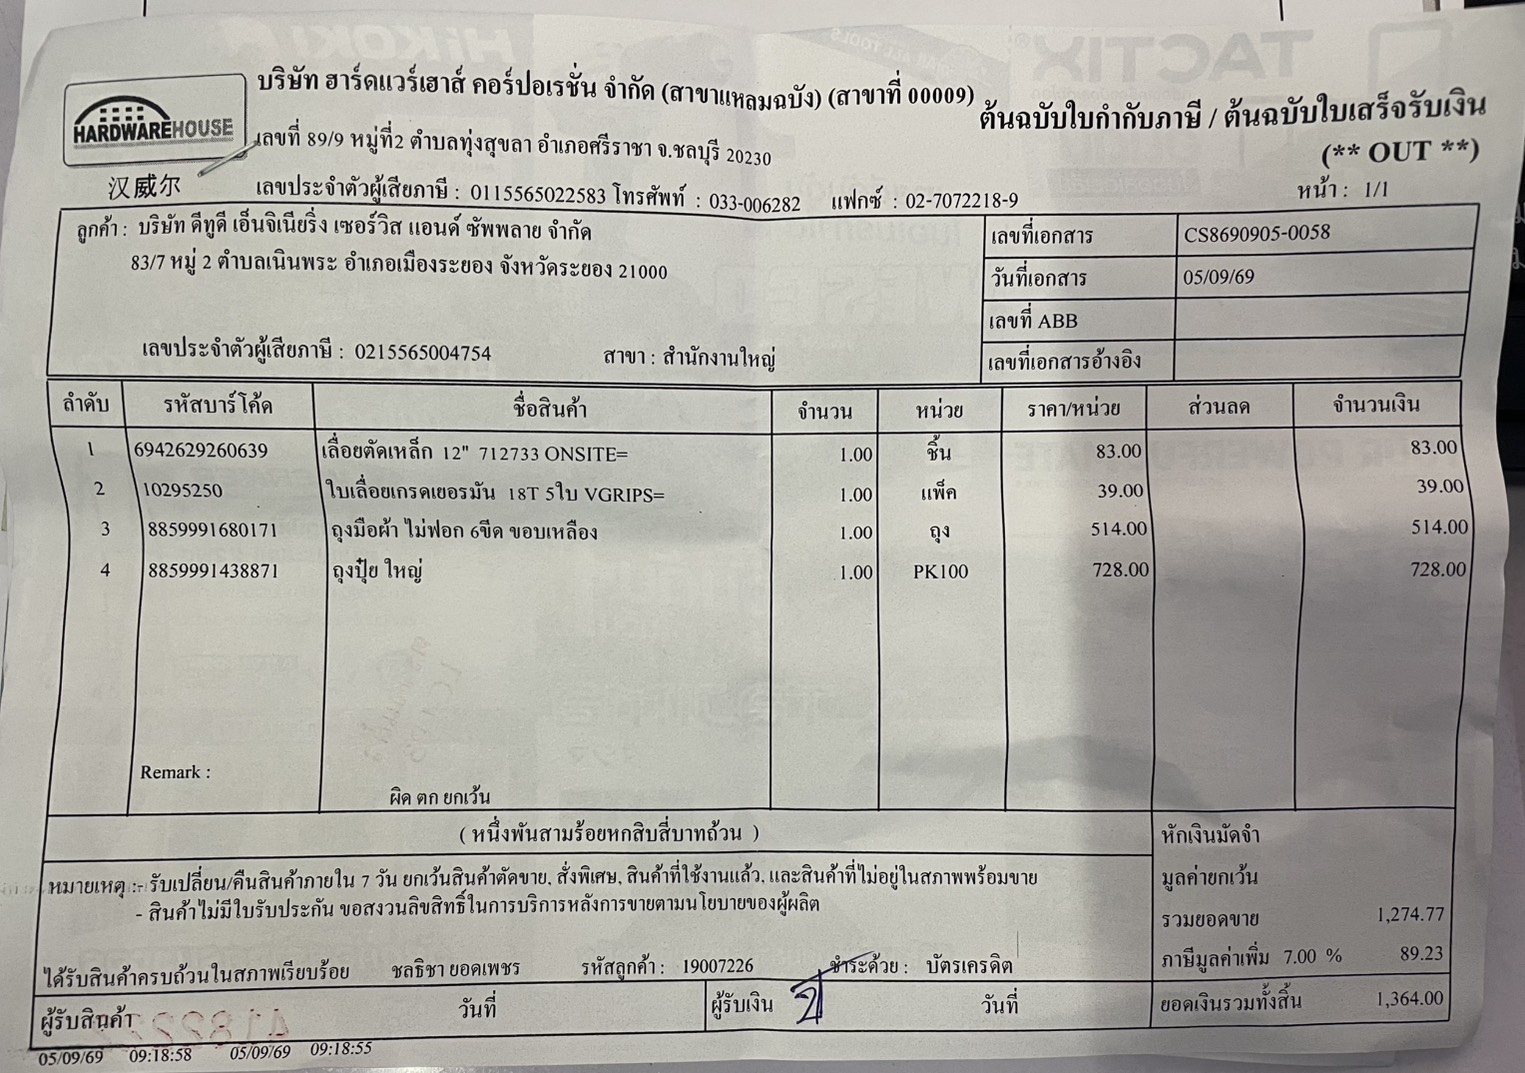 HARDWAREHOUSE
汉威尔
บริษัท ฮาร์ดแวร์เฮาส์ คอร์ปอเรชั่น จำกัด (สาขาแหลมฉบัง) (สาขาที่ 00009)
เลขที่ 89/9 หมู่ที่2 ตำบลทุ่งสุขลา อำเภอศรีราชา จ.ชลบุรี 20230
เลขประจำตัวผู้เสียภาษี : 0115565022583 โทรศัพท์ : 033-006282 แฟกซ์ : 02-7072218-9
ต้นฉบับใบกำกับภาษี / ต้นฉบับใบเสร็จรับเงิน
(** OUT **)
หน้า : 1/1
ลูกค้า : บริษัท ดีทูดี เอ็นจิเนียริ่ง เซอร์วิส แอนด์ ซัพพลาย จำกัด
83/7 หมู่ 2 ตำบลเนินพระ อำเภอเมืองระยอง จังหวัดระยอง 21000
เลขประจำตัวผู้เสียภาษี : 0215565004754 สาขา : สำนักงานใหญ่
เลขที่เอกสาร CS8690905-0058
วันที่เอกสาร 05/09/69
เลขที่ ABB
เลขที่เอกสารอ้างอิง
ลำดับ รหัสบาร์โค้ด ชื่อสินค้า จำนวน หน่วย ราคา/หน่วย ส่วนลด จำนวนเงิน
1 6942629260639 เลื่อยตัดเหล็ก 12" 712733 ONSITE= 1.00 ชิ้น 83.00 83.00
2 10295250 ใบเลื่อยเกรดเยอรมัน 18T 5ใบ VGRIPS= 1.00 แพ็ค 39.00 39.00
3 8859991680171 ถุงมือผ้า ไม่ฟอก 6ขีด ขอบเหลือง 1.00 ถุง 514.00 514.00
4 8859991438871 ถุงปุ๋ย ใหญ่ 1.00 PK100 728.00 728.00
Remark :
ผิด ตก ยกเว้น
( หนึ่งพันสามร้อยหกสิบสี่บาทถ้วน )
หมายเหตุ :- รับเปลี่ยน/คืนสินค้าภายใน 7 วัน ยกเว้นสินค้าตัดขาย, สั่งพิเศษ, สินค้าที่ใช้งานแล้ว, และสินค้าที่ไม่อยู่ในสภาพพร้อมขาย
- สินค้าไม่มีใบรับประกัน ขอสงวนลิขสิทธิ์ในการบริการหลังการขายตามนโยบายของผู้ผลิต
หักเงินมัดจำ
มูลค่ายกเว้น
รวมยอดขาย 1,274.77
ภาษีมูลค่าเพิ่ม 7.00 % 89.23
ยอดเงินรวมทั้งสิ้น 1,364.00
ได้รับสินค้าครบถ้วนในสภาพเรียบร้อย ชลธิชา ยอดเพชร รหัสลูกค้า : 19007226 ชำระด้วย : บัตรเครดิต
ผู้รับสินค้า วันที่ ผู้รับเงิน วันที่
05/09/69 09:18:58 05/09/69 09:18:55